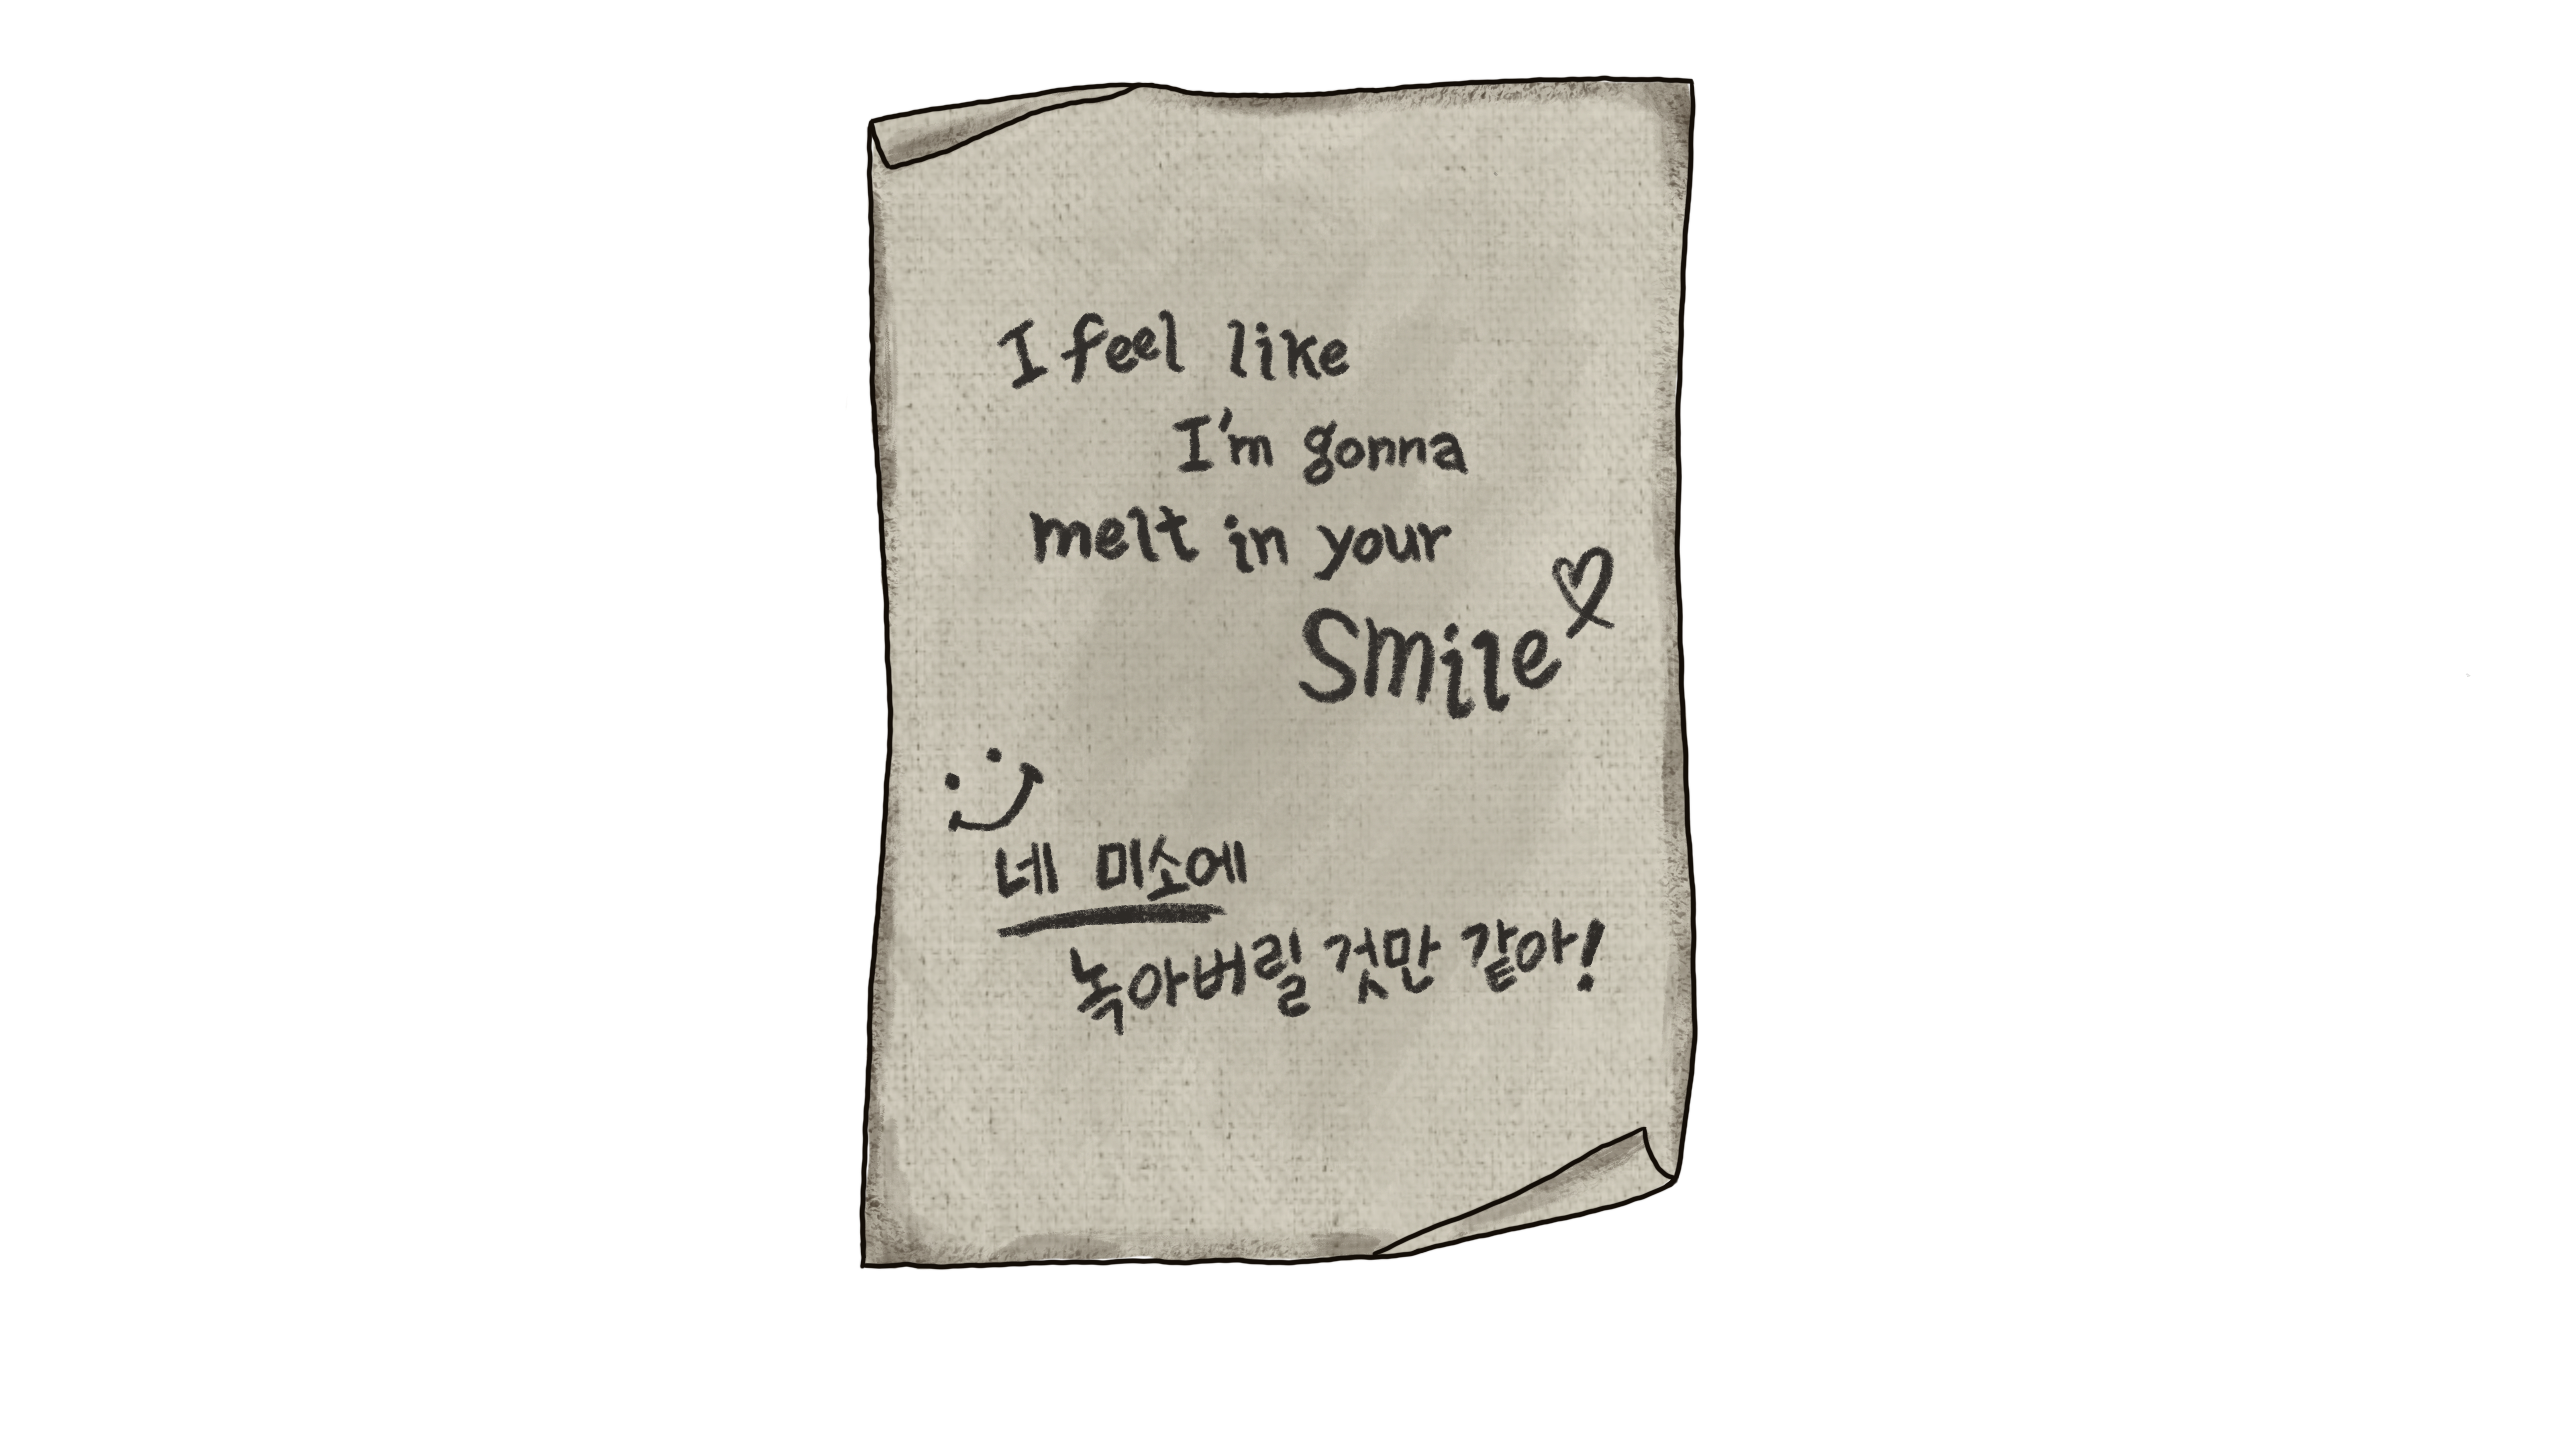 I feel like
I'm gonna
melt in your
Smile
네 미소에
녹아버릴 것만 같아!